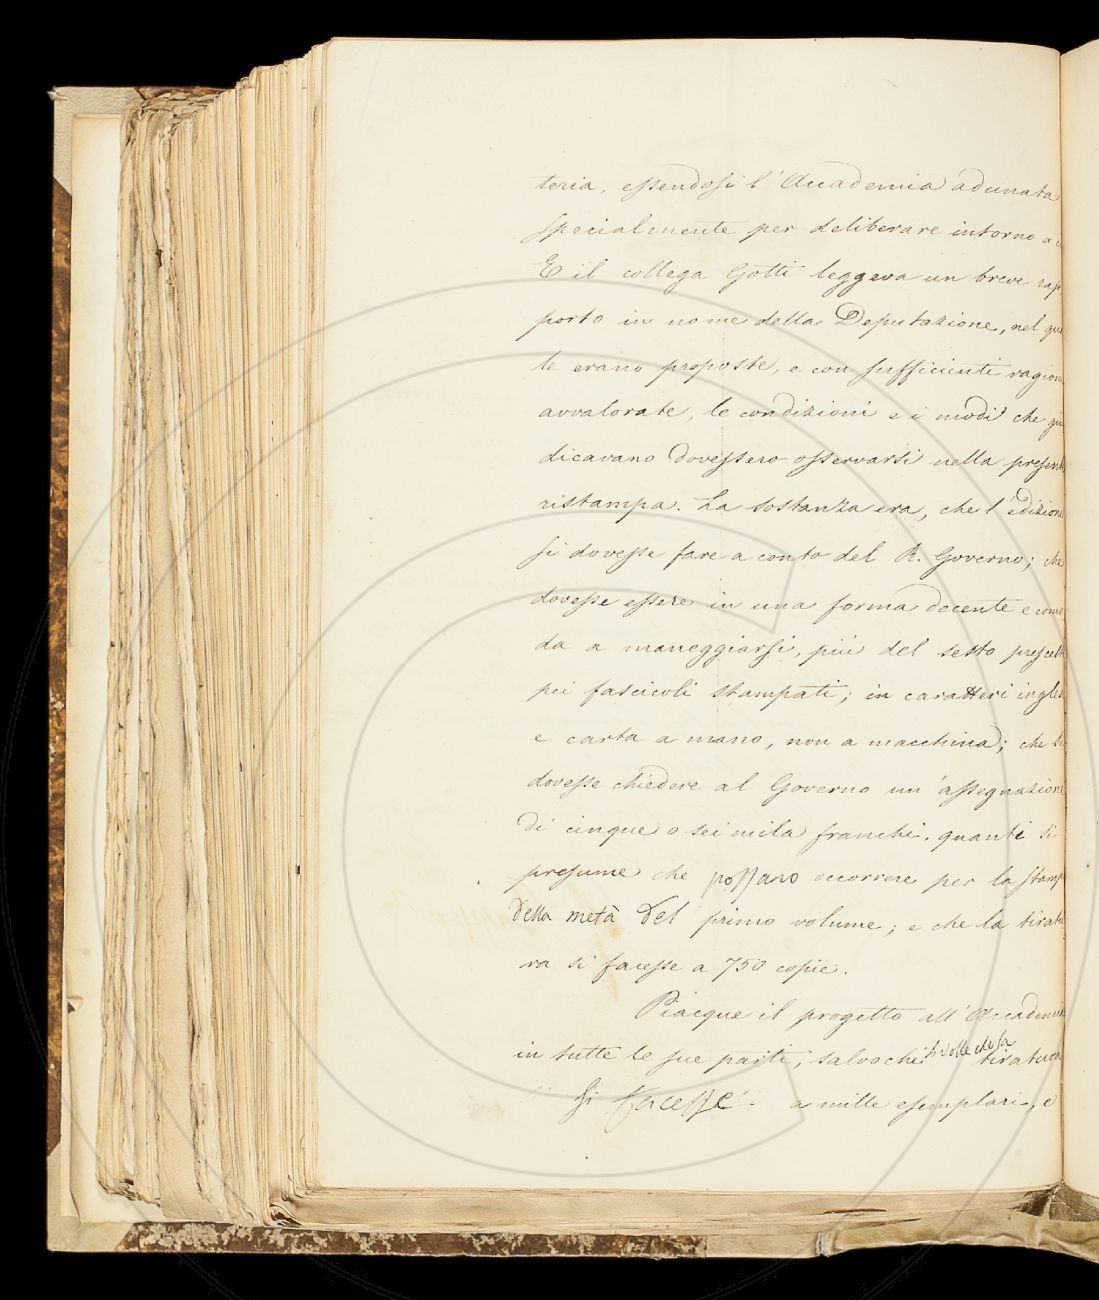 teria, essendosi l'Accademia adunata
specialmente per deliberare intorno a
E il collega Gotti leggeva un breve rap
porto in nome della Deputazione, nel qua
le erano proposte, e con sufficienti ragion
avvalorate, le condizioni e i modi che giu
dicavano dovessero osservarsi nella present
ristampa. La sostanza era, che l'edizione
si dovesse fare a conto del R. Governo; che
dovesse essere in una forma decente e como
da a maneggiarsi, più del sesto prescelt
pei fascicoli stampati; in caratteri ingles
e carta a mano, non a macchina; che si
dovesse chiedere al Governo un'assegnazion
di cinque o sei mila franchi, quanti si
presume che possano occorrere per la stamp
della metà del primo volume; e che la tiratu
ra si facesse a 750 copie.
Piacque il progetto all'Accademia
in tutte le sue parti, salvochè si volle che la tiratura
si facesse a mille esemplari, e